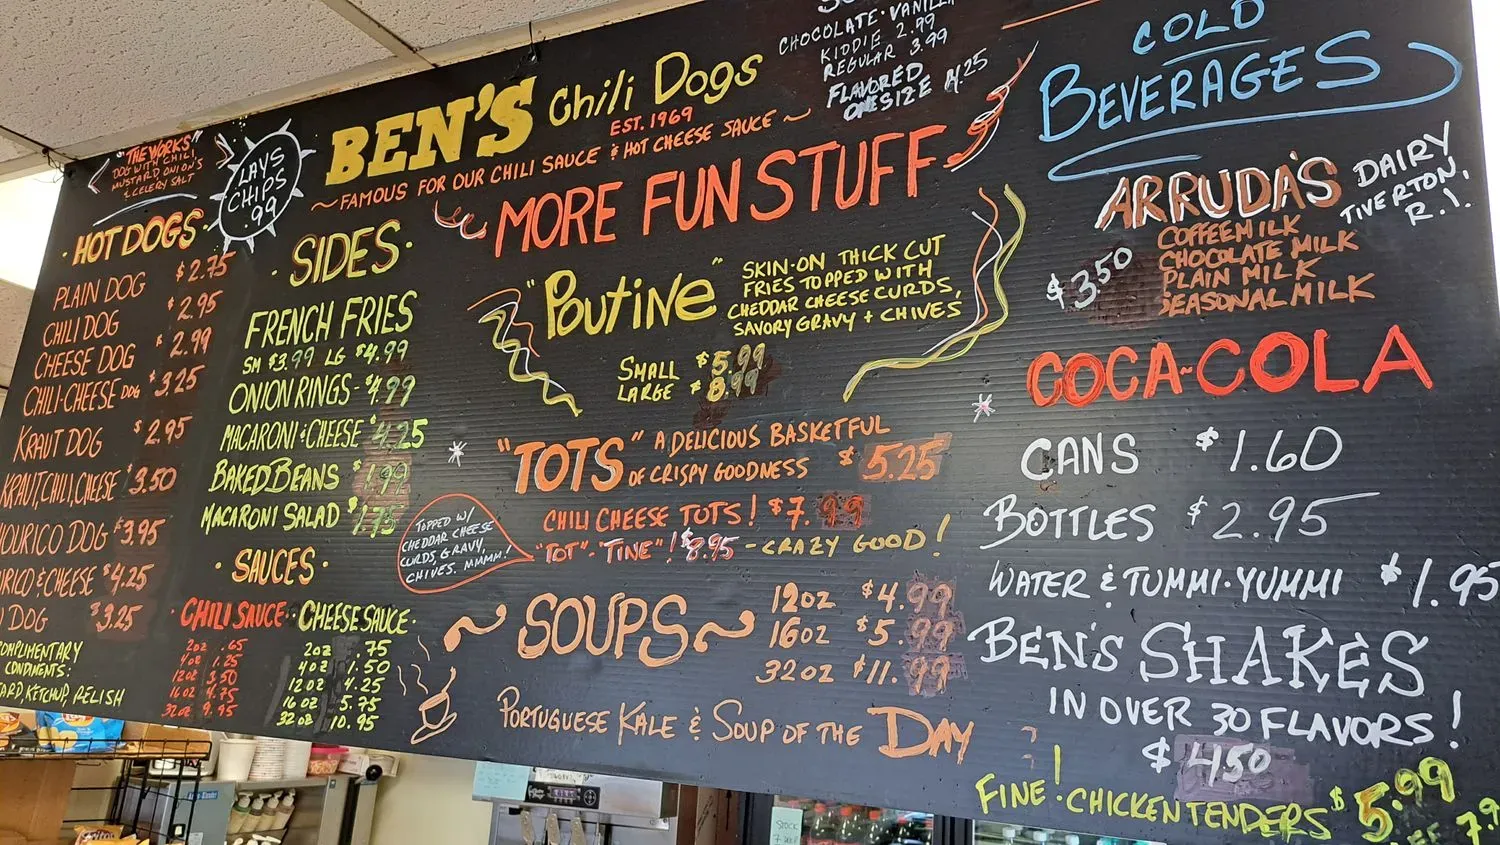 "THE WORKS"
DOG WITH CHILI,
MUSTARD, ONION'S
& CELERY SALT
LAYS
CHIPS
99
· HOT DOGS ·
PLAIN DOG $2.75
CHILI DOG $2.95
CHEESE DOG $2.99
CHILI-CHEESE DOG $3.25
KRAUT DOG $2.95
KRAUT, CHILI, CHEESE $3.50
HOURICO DOG $3.95
RICO & CHEESE $4.25
DOG $3.25
OMPLIMENTARY
CONDIMENTS:
ARD, KETCHUP, RELISH
BEN'S Chili Dogs
EST. 1969
~ FAMOUS FOR OUR CHILI SAUCE & HOT CHEESE SAUCE ~
· SIDES ·
FRENCH FRIES
SM $3.99 LG $4.99
ONION RINGS - $4.99
MACARONI & CHEESE $4.25
BAKED BEANS $1.99
MACARONI SALAD $1.75
· SAUCES ·
· CHILI SAUCE ·
2oz .65
4oz 1.25
12oz 3.50
16oz 4.75
32oz 9.95
CHEESE SAUCE ·
2oz .75
4oz 1.50
12oz 4.25
16oz 5.75
32oz 10.95
CHOCOLATE · VANILLA
KIDDIE 2.99
REGULAR 3.99
FLAVORED
ONE SIZE 4.25
MORE FUN STUFF
"POUTINE"
SKIN-ON THICK CUT
FRIES TOPPED WITH
CHEDDAR CHEESE CURDS,
SAVORY GRAVY + CHIVES
SMALL $5.99
LARGE $8.99
"TOTS" A DELICIOUS BASKETFUL
OF CRISPY GOODNESS $5.25
CHILI CHEESE TOTS! $7.99
"TOT"-"TINE"! $8.95 - CRAZY GOOD!
TOPPED W/
CHEDDAR CHEESE
CURDS, GRAVY,
CHIVES. MMMM!
~ SOUPS ~
12oz $4.99
16oz $5.99
32oz $11.99
PORTUGUESE KALE & SOUP OF THE DAY
COLD
BEVERAGES
ARRUDA'S DAIRY
TIVERTON,
R.I.
$3.50
COFFEE MILK
CHOCOLATE MILK
PLAIN MILK
SEASONAL MILK
COCA~COLA
CANS $1.60
BOTTLES $2.95
WATER & TUMMI-YUMMI $1.95
BEN'S SHAKES
IN OVER 30 FLAVORS!
$4.50
FINE! · CHICKEN TENDERS $5.99